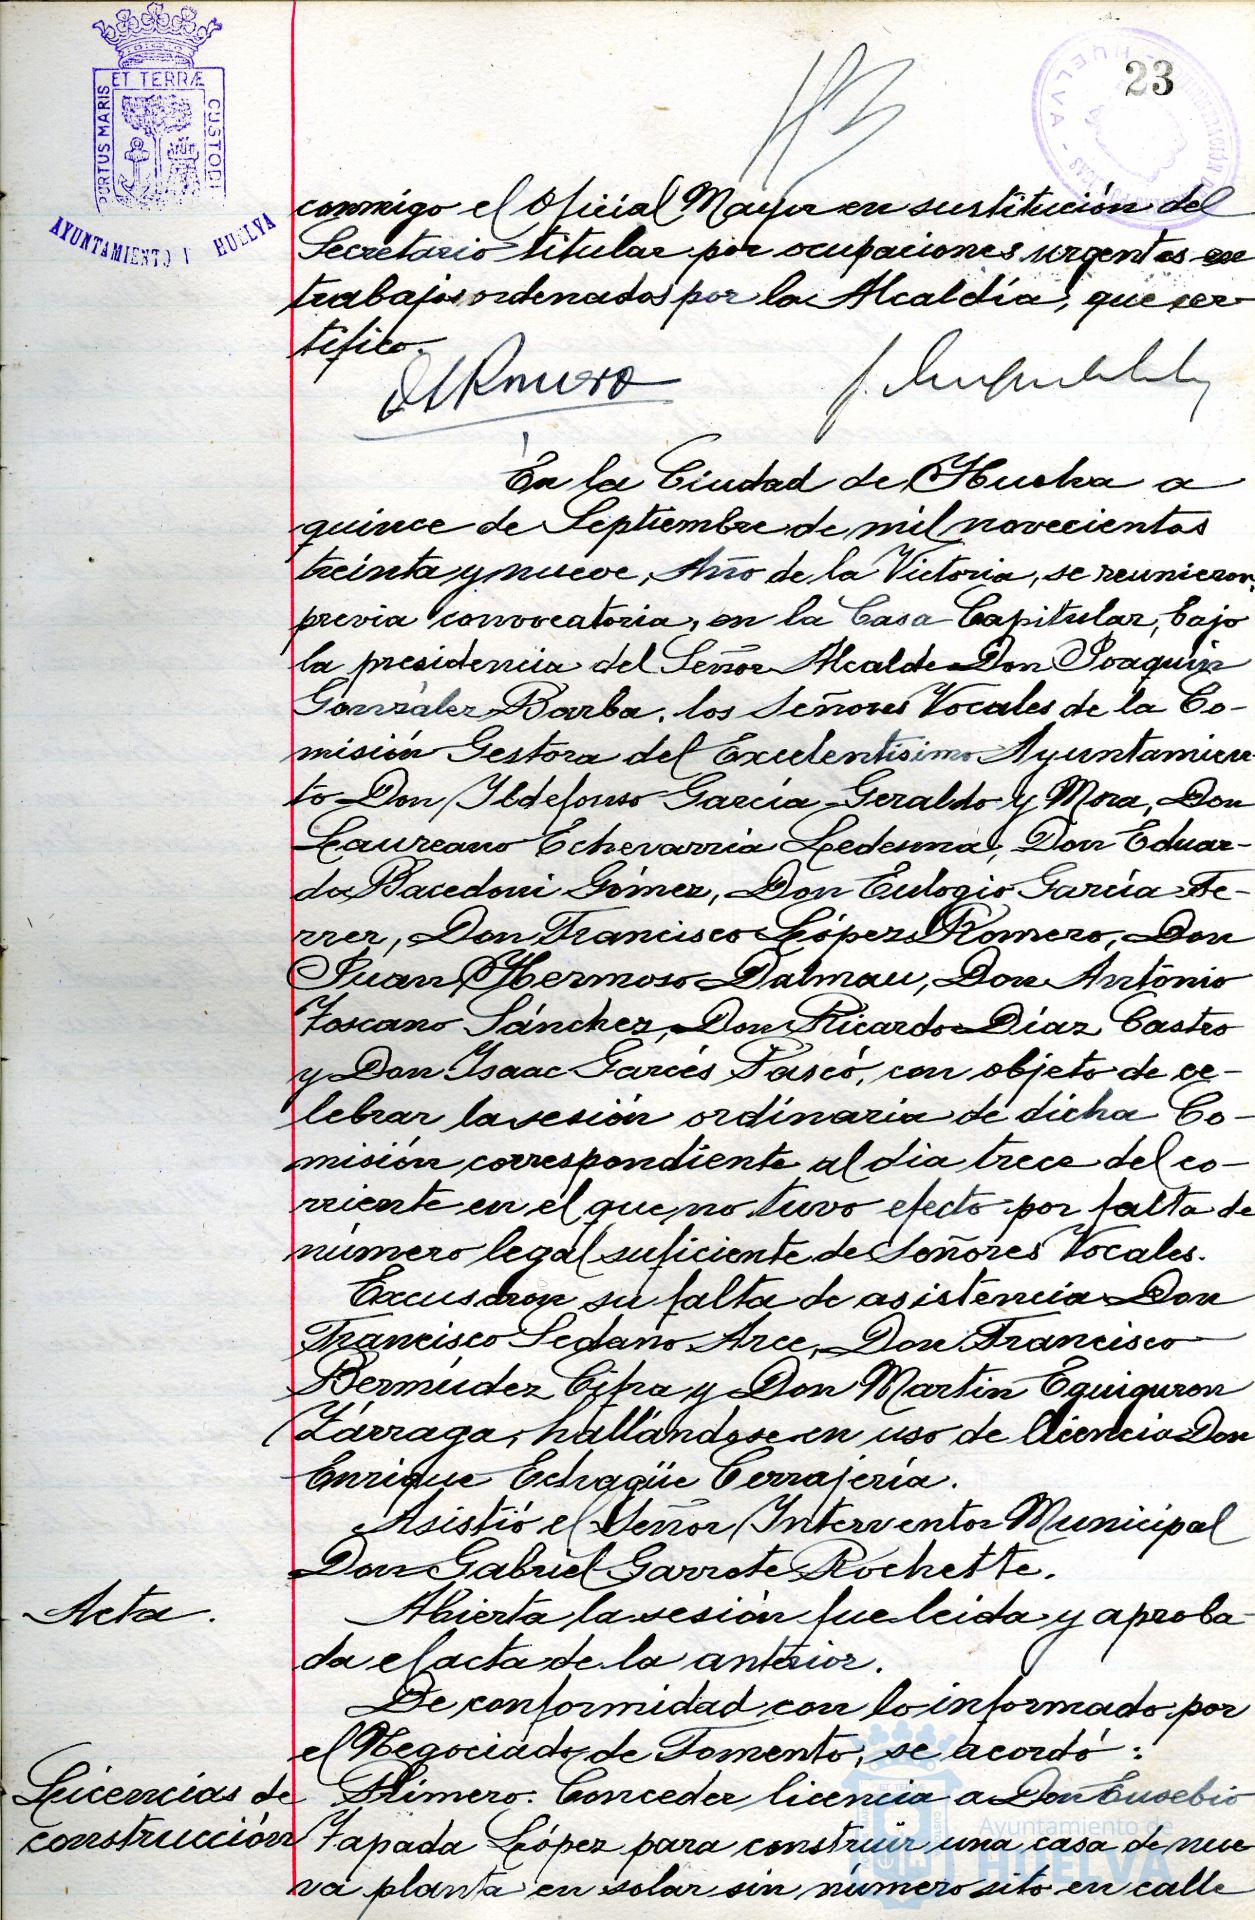 ET TERRÆ
PORTUS MARIS
CUSTODI
AYUNTAMIENTO HUELVA
HUELVA
23
conmigo el Oficial Mayor en sustitución del
Secretario titular por ocupaciones urgentes en
trabajos ordenados por la Alcaldía, que cer-
tifico.
En la Ciudad de Huelva a
quince de Septiembre de mil novecientos
treinta y nueve, Año de la Victoria, se reunieron,
previa convocatoria, en la Casa Capitular, bajo
la presidencia del Señor Alcalde Don Joaquín
González Barba, los Señores Vocales de la Co-
misión Gestora del Excelentísimo Ayuntamien-
to Don Ildefonso García Geraldo y Mora, Don
Laureano Echevarría Ledesma, Don Eduar-
do Bacedoni Gómez, Don Eulogio García Fe-
rrer, Don Francisco López Romero, Don
Juan Hermoso Dalmau, Don António
Toscano Sánchez, Don Ricardo Díaz Castro
y Don Isaac Garcés Pascó, con objeto de ce-
lebrar la sesión ordinaria de dicha Co-
misión correspondiente al dia trece del co-
rriente en el que no tuvo efecto por falta de
número legal suficiente de Señores Vocales.
Excusaron su falta de asistencia Don
Francisco Sedano Arce, Don Francisco
Bermúdez Cifra y Don Martín Eguiguron
Zárraga, hallándose en uso de licencia Don
Enrique Echagüe Cerrajería.
Asistió el Señor Interventor Municipal
Don Gabriel Garrote Rochette.
Acta.
Abierta la sesión fue leida y aproba-
da el acta de la anterior.
De conformidad con lo informado por
el Negociado de Fomento, se acordó:
Licencias de
construcción
Primero. Conceder licencia a Don Eusebio
Tapada López para construir una casa de nue-
va planta en solar sin número sito en calle
Ayuntamiento de
HUELVA